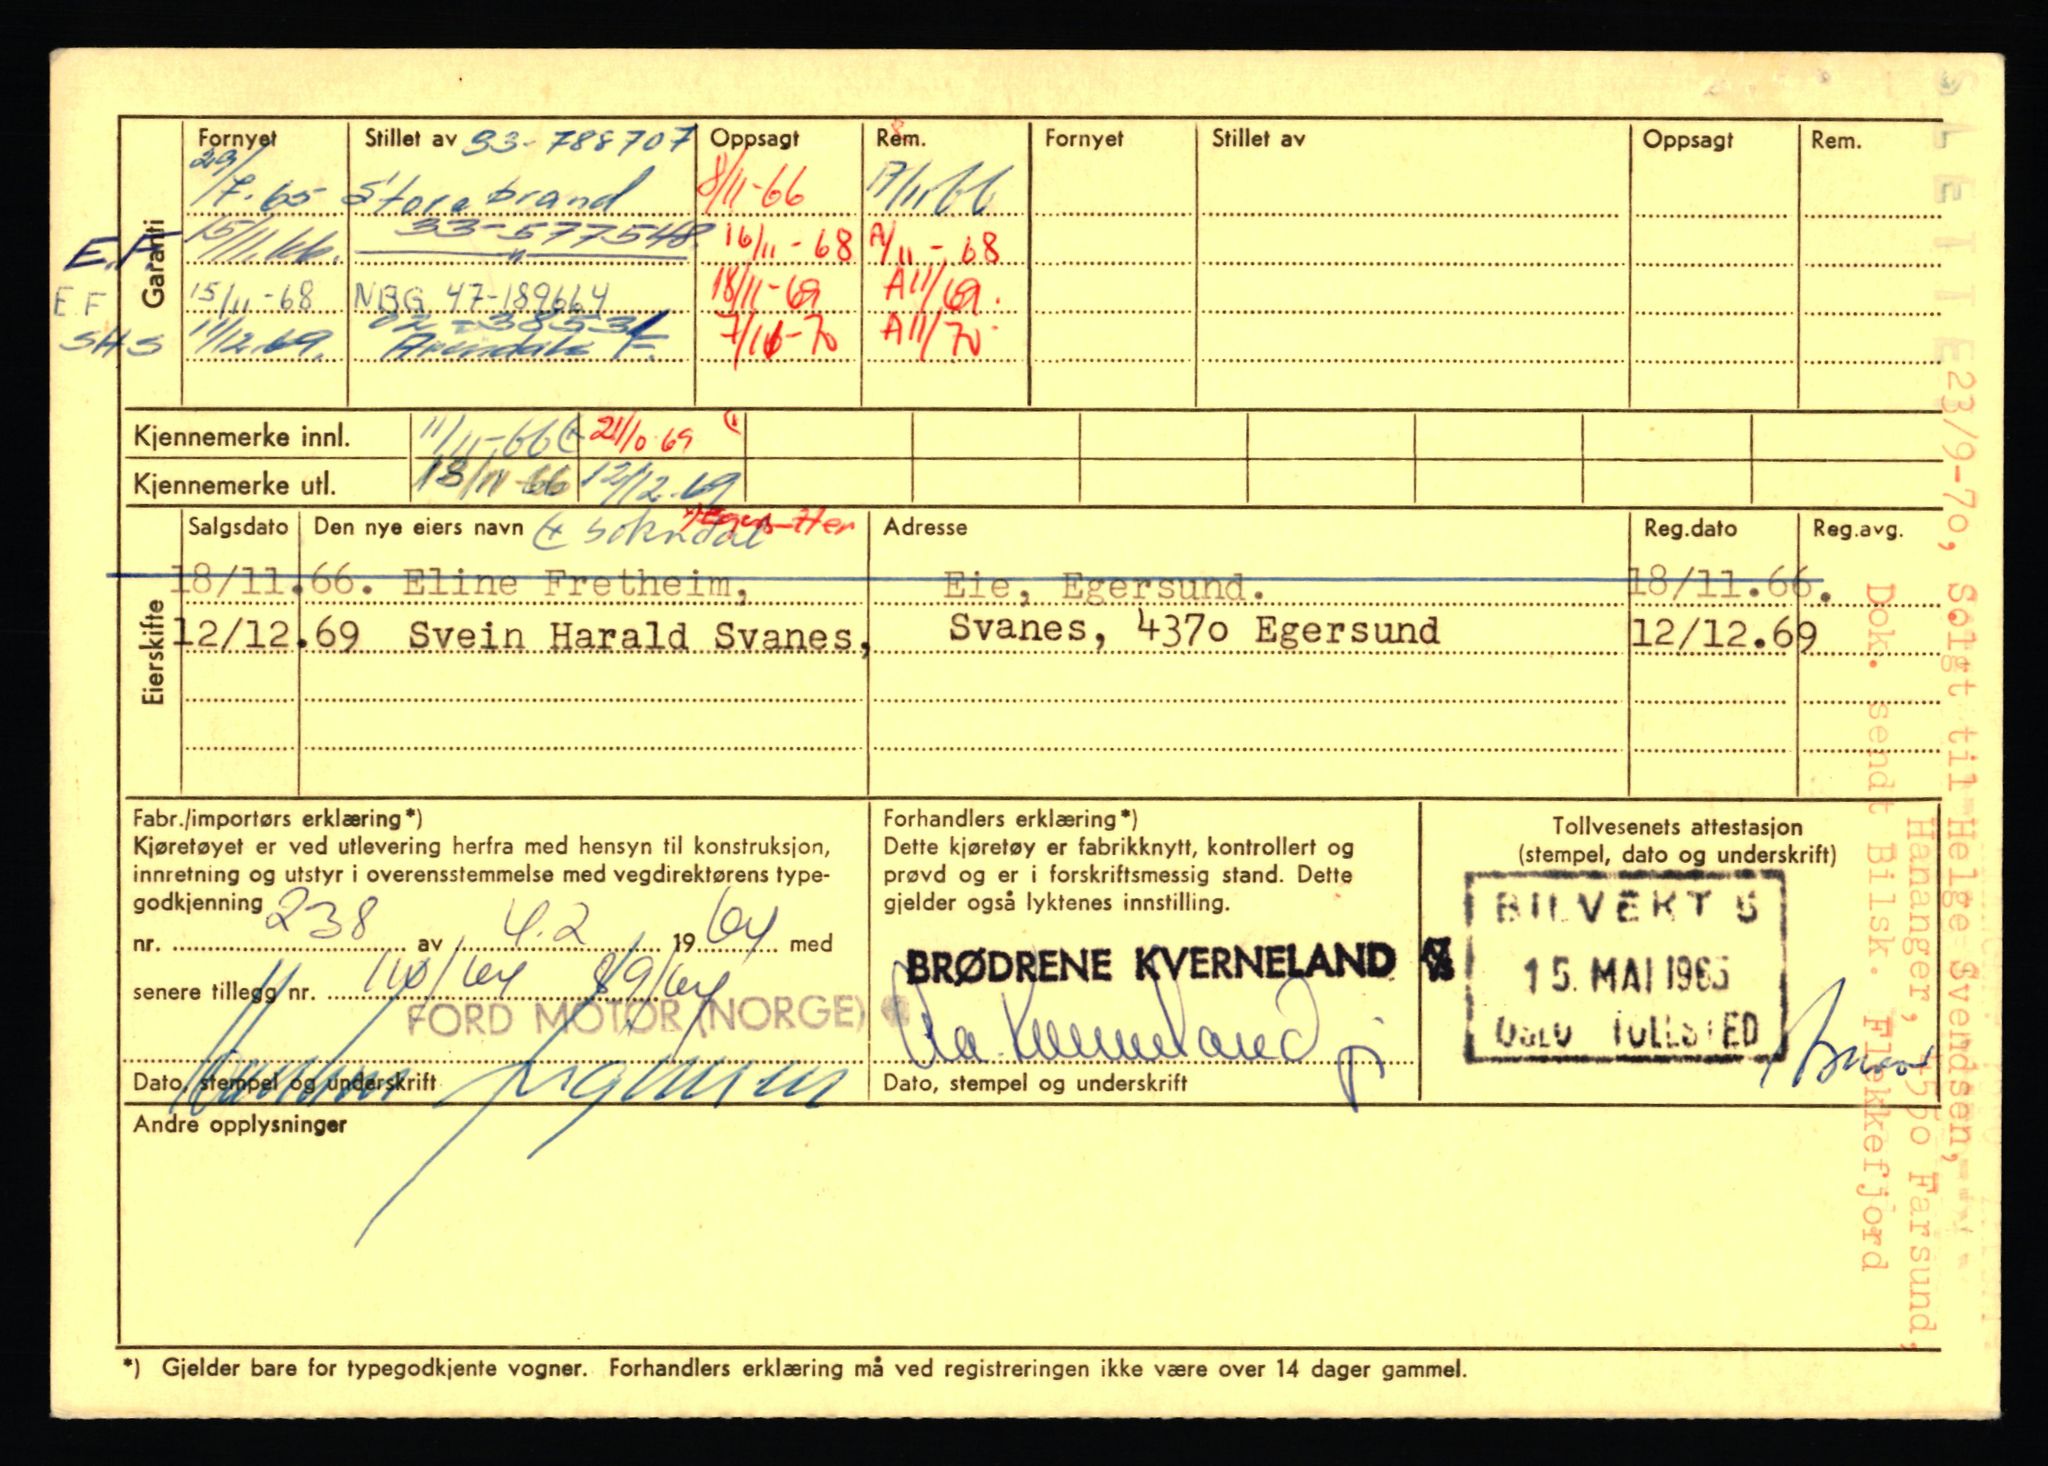 Garanti
Fornyet Stillet av 33-788707 Oppsagt Rem. Fornyet Stillet av Oppsagt Rem.
29/7.65 Storebrand 8/11-66 A/11 66
E.F. 15/11.66. 33-577548 16/11-68 A/11-68
E F 15/11-68 NBG 47-189664 18/11-69 A11/69.
SHS 11/12.69. 02-38534 7/10-70 A11/70
Kjennemerke innl. 11/11-66 21/10.69
Kjennemerke utl. 18/11-66 12/12.69
Eierskifte
Salgsdato Den nye eiers navn Sokndal Adresse Reg.dato Reg.avg.
18/11.66. Eline Fretheim, Eie, Egersund. 18/11.66.
12/12.69 Svein Harald Svanes, Svanes, 4370 Egersund 12/12.69
Fabr./importørs erklæring*)
Kjøretøyet er ved utlevering herfra med hensyn til konstruksjon,
innretning og utstyr i overensstemmelse med vegdirektørens type-
godkjenning
nr. 238 av 4.2 1964 med
senere tillegg nr. 110/64 89/64
FORD MOTOR (NORGE)
Dato, stempel og underskrift
Forhandlers erklæring*)
Dette kjøretøy er fabrikknytt, kontrollert og
prøvd og er i forskriftsmessig stand. Dette
gjelder også lyktenes innstilling.
BRØDRENE KVERNELAND A/S
Dato, stempel og underskrift
Tollvesenets attestasjon
(stempel, dato og underskrift)
BILVEKT 5
15. MAI 1965
OSLO TOLLSTED
Andre opplysninger
*) Gjelder bare for typegodkjente vogner. Forhandlers erklæring må ved registreringen ikke være over 14 dager gammel.
SLETTE 23/9-70, Solgt til Helge Svendsen,
Hananger, 4550 Farsund,
Dok. sendt Bilsk. Flekkefjord